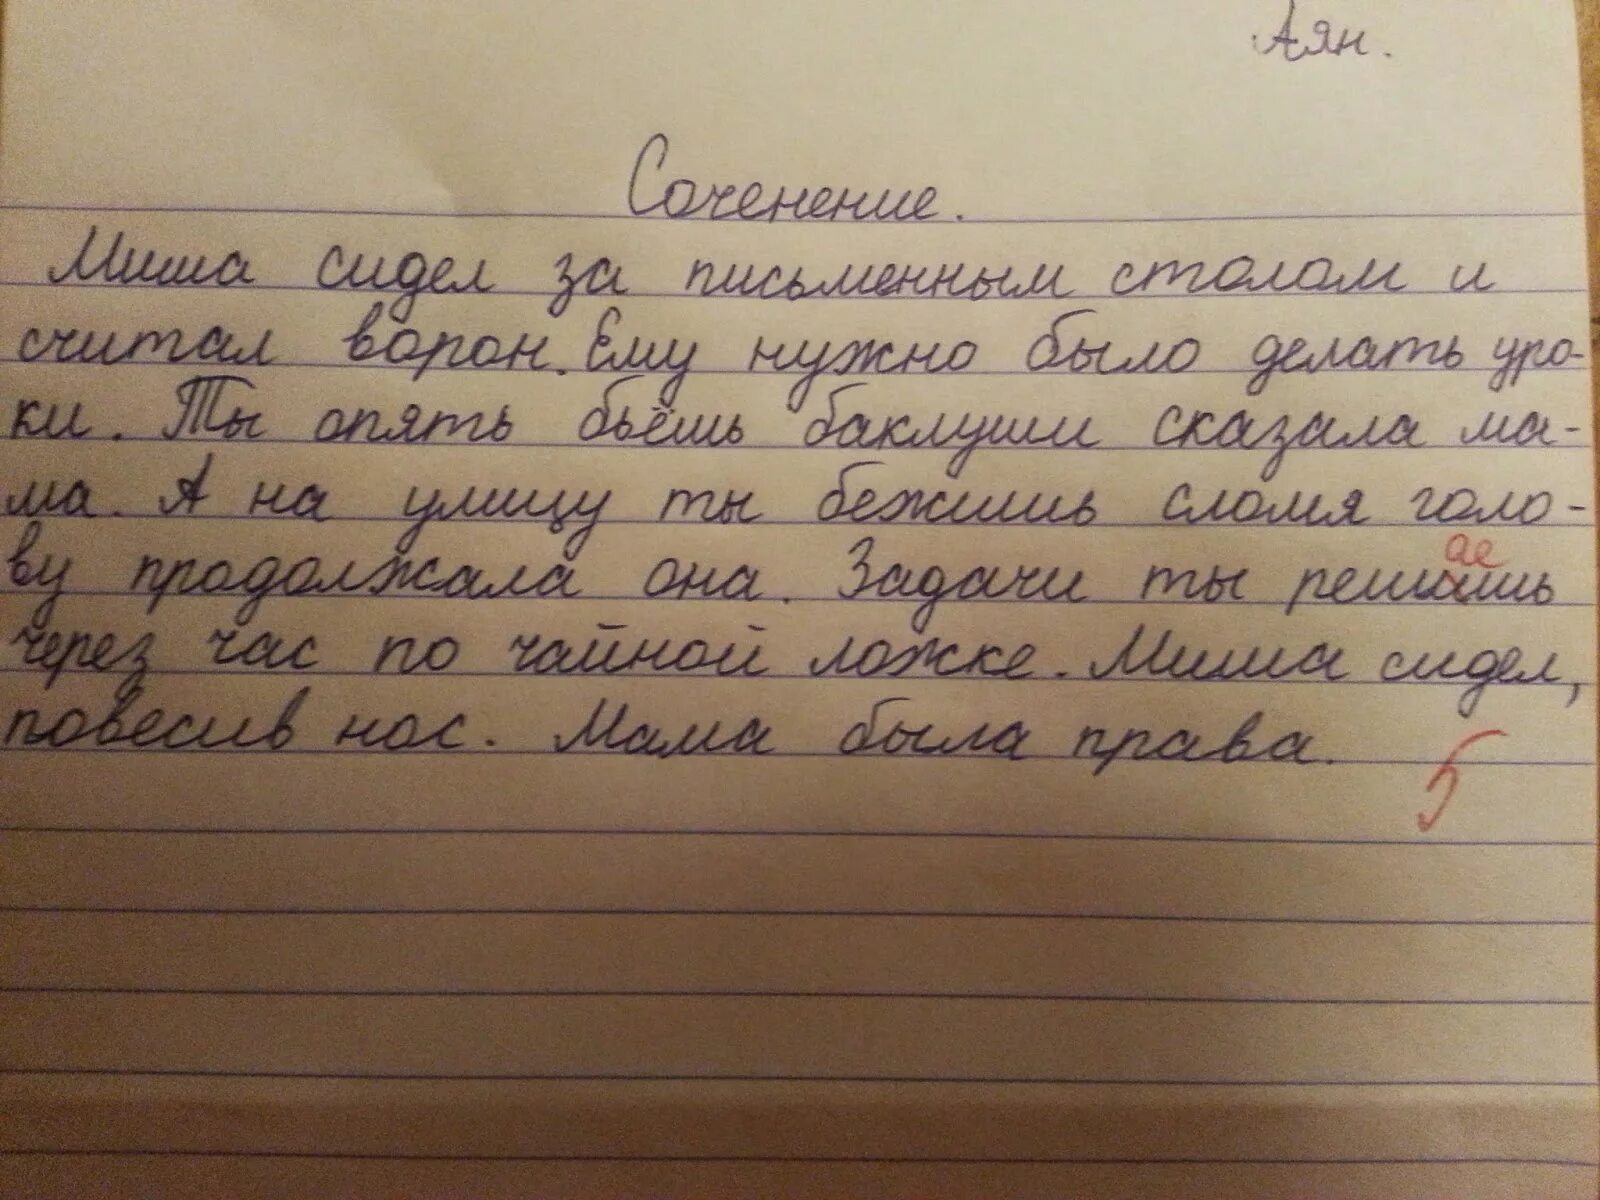 Аян.
Соченение.
Миша сидел за письменным столом и
считал ворон. Ему нужно было делать уро-
ки. Ты опять бьёшь баклуши сказала ма-
ма. А на улицу ты бежишь сломя голо-
ае
ву продолжала она. Задачи ты решишь
через час по чайной ложке. Миша сидел,
повесив нос. Мама была права.
5